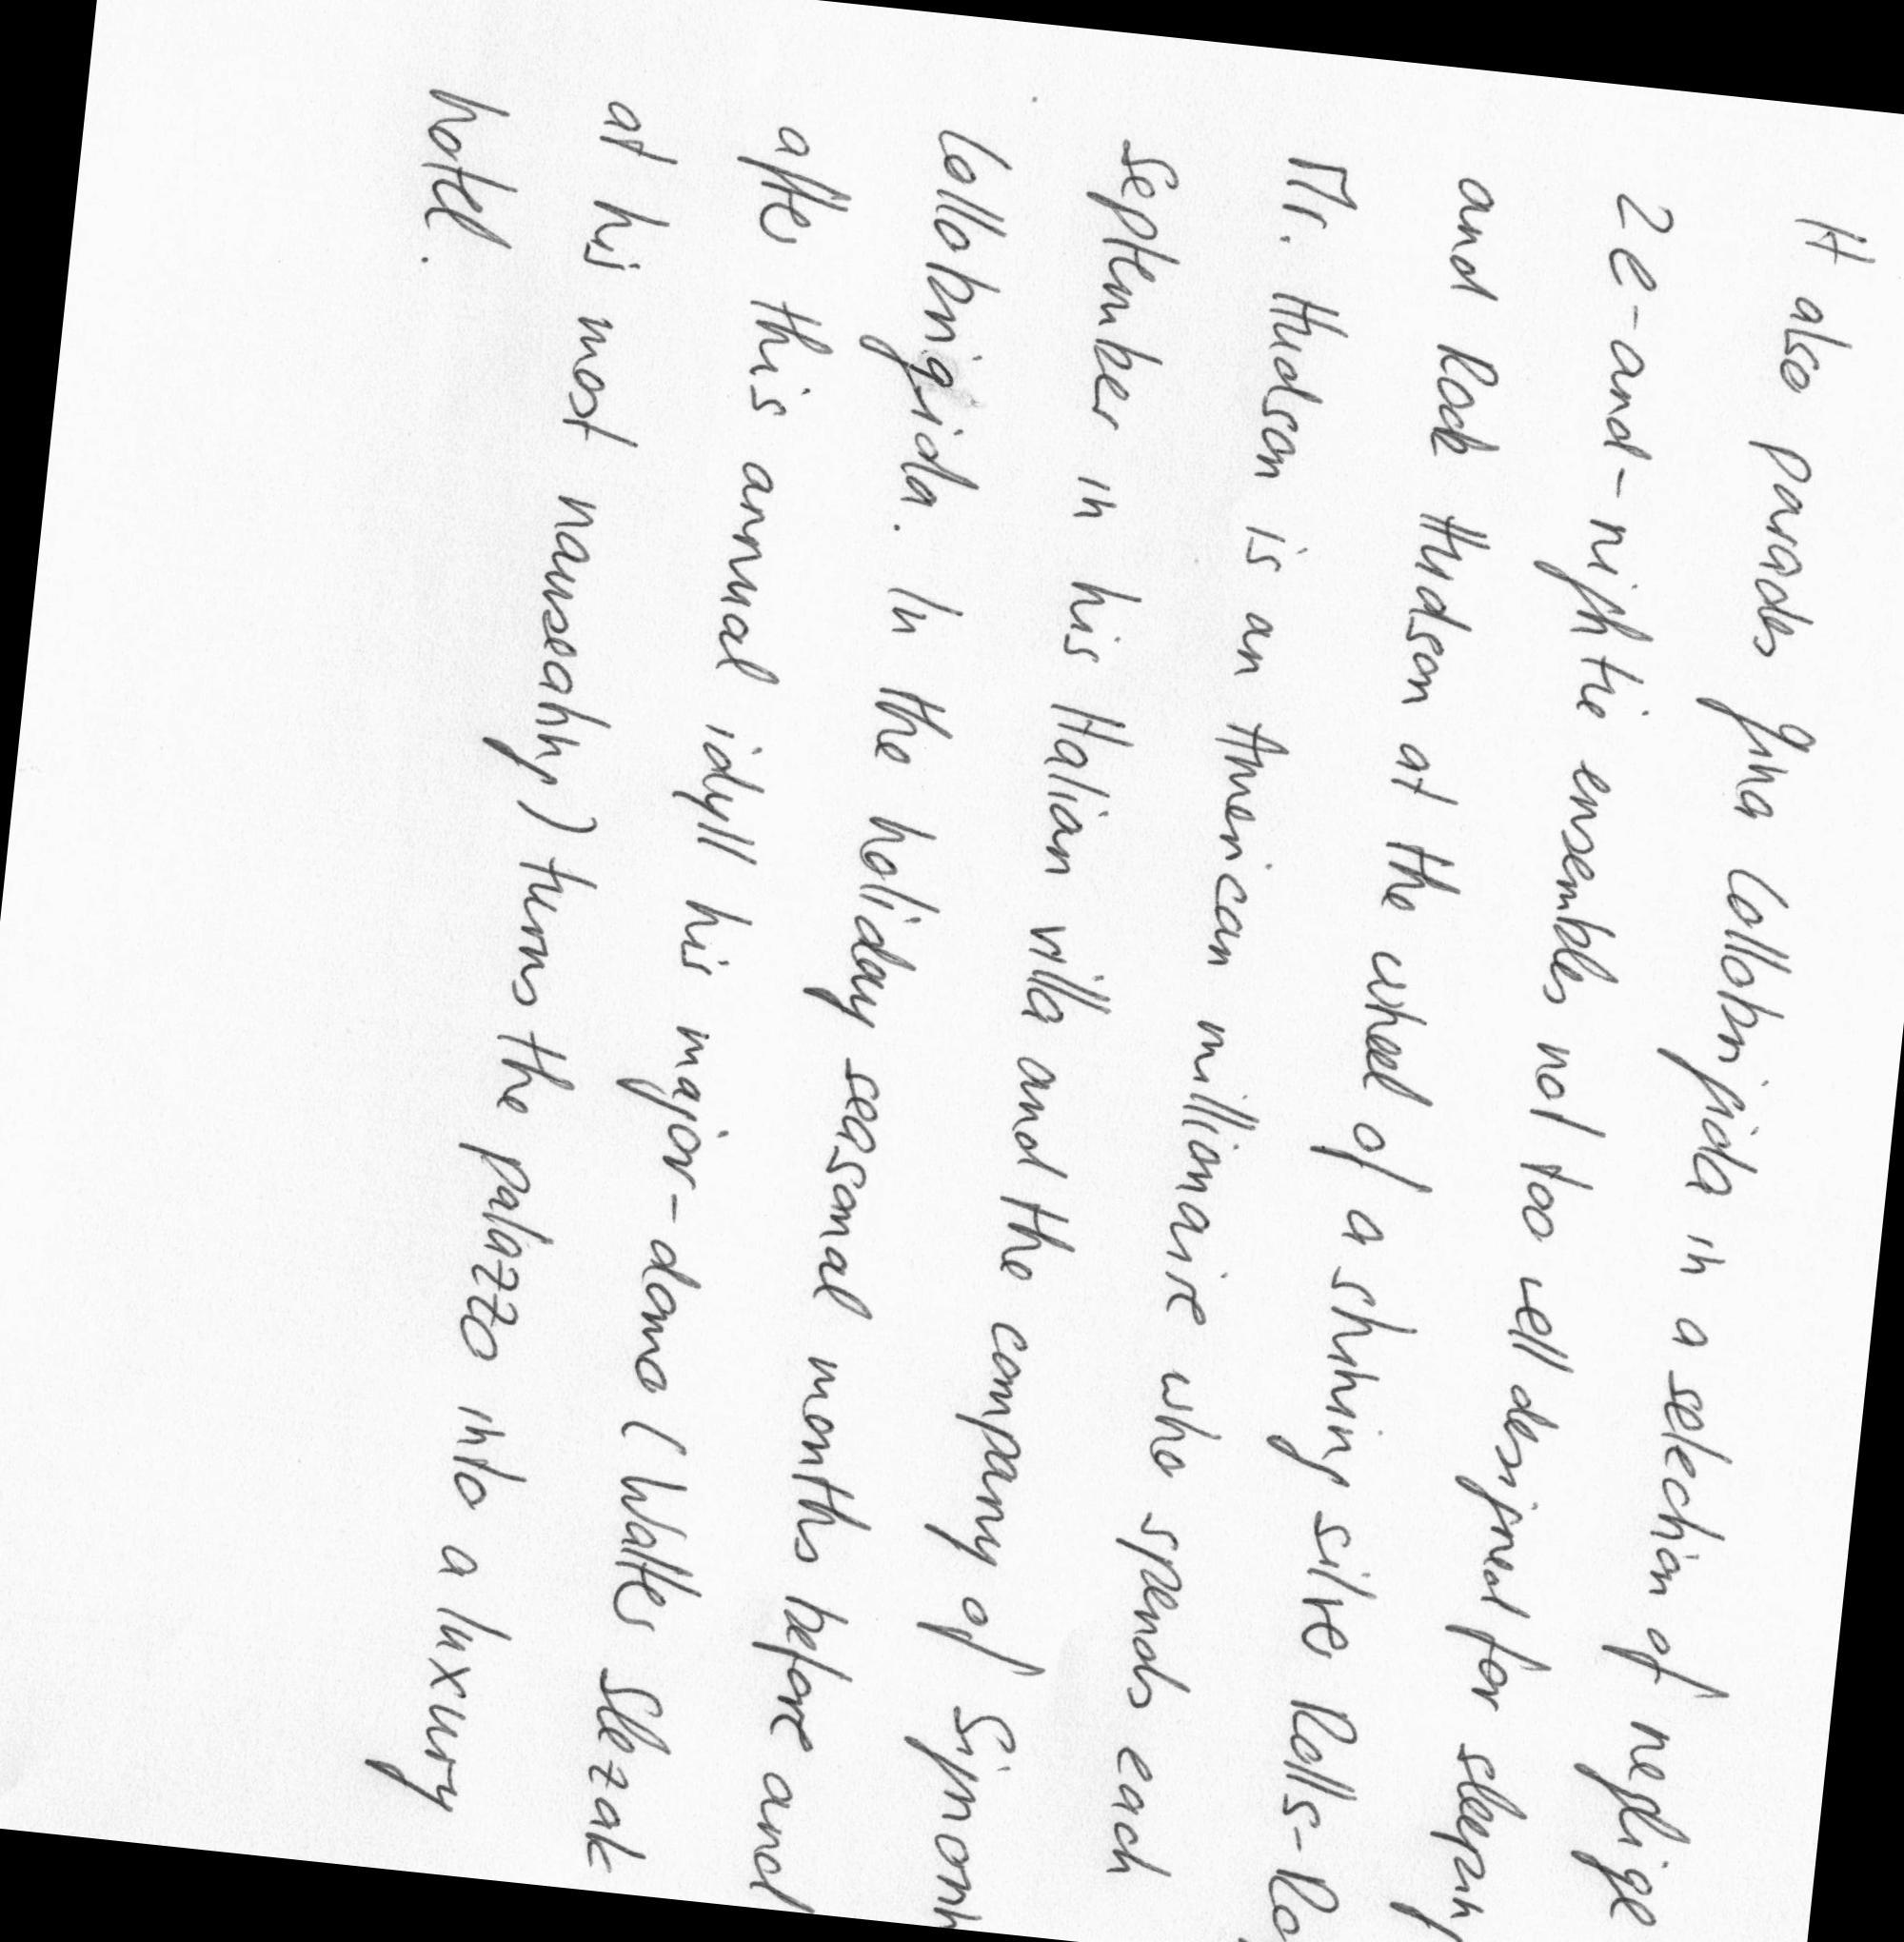 It also parades Gina Lollobrigida in a selection of neglige
2e-and-nightie ensembles not too well designed for sleeping
and Rock Hudson at the wheel of a shining silver Rolls-Ro
Mr. Hudson is an American millionaire who spends each
September in his Italian villa and the company of Signorin
Lollobrigida. In the holiday seasonal months before and
after this annual idyll his major-domo (Walter Slezak
at his most nauseating) turns the palazzo into a luxury
hotel.